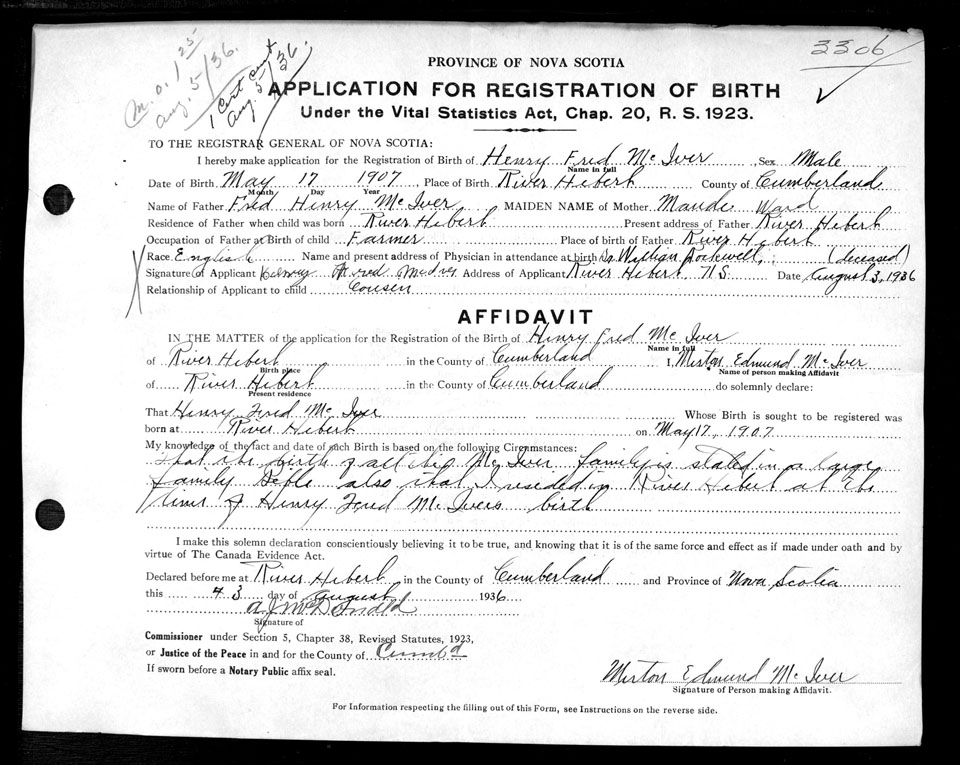 M.O. 1 25
Aug. 5/36.
1 Cert cert
Aug. 5/36.
3306
PROVINCE OF NOVA SCOTIA
APPLICATION FOR REGISTRATION OF BIRTH
Under the Vital Statistics Act, Chap. 20, R. S. 1923.
TO THE REGISTRAR GENERAL OF NOVA SCOTIA:
I hereby make application for the Registration of Birth of Henry Fred McIver, Sex Male
Name in full
Date of Birth May 17 1907, Place of Birth River Hebert County of Cumberland
Month Day Year
Name of Father Fred Henry McIver MAIDEN NAME of Mother Maude Ward
Residence of Father when child was born River Hebert Present address of Father River Hebert
Occupation of Father at Birth of child Farmer Place of birth of Father River Hebert
Race English Name and present address of Physician in attendance at birth Dr William Rockwell, (deceased)
Signature of Applicant Henry Fred McIver Address of Applicant River Hebert N.S. Date August 3, 1936
Relationship of Applicant to child Cousen
AFFIDAVIT
IN THE MATTER of the application for the Registration of the Birth of Henry Fred McIver
Name in full
of River Hebert in the County of Cumberland I, Mirton Edmund McIver
Birth place Name of person making Affidavit
of River Hebert in the County of Cumberland do solemnly declare:
Present residence
That Henry Fred McIver Whose Birth is sought to be registered was
born at River Hebert on May 17, 1907
My knowledge of the fact and date of such Birth is based on the following Circumstances:
that the birth of all the McIver family is stated in a large
family Bible also that I reseded in River Hebert at the
time of Henry Fred McIvers birth
I make this solemn declaration conscientiously believing it to be true, and knowing that it is of the same force and effect as if made under oath and by
virtue of The Canada Evidence Act.
Declared before me at River Hebert in the County of Cumberland and Province of Nova Scotia
this 3 day of August 1936
A J McDonald
Signature of
Commissioner under Section 5, Chapter 38, Revised Statutes, 1923,
or Justice of the Peace in and for the County of Cumbd
If sworn before a Notary Public affix seal.
Mirton Edmund McIver
Signature of Person making Affidavit.
For Information respecting the filling out of this Form, see Instructions on the reverse side.